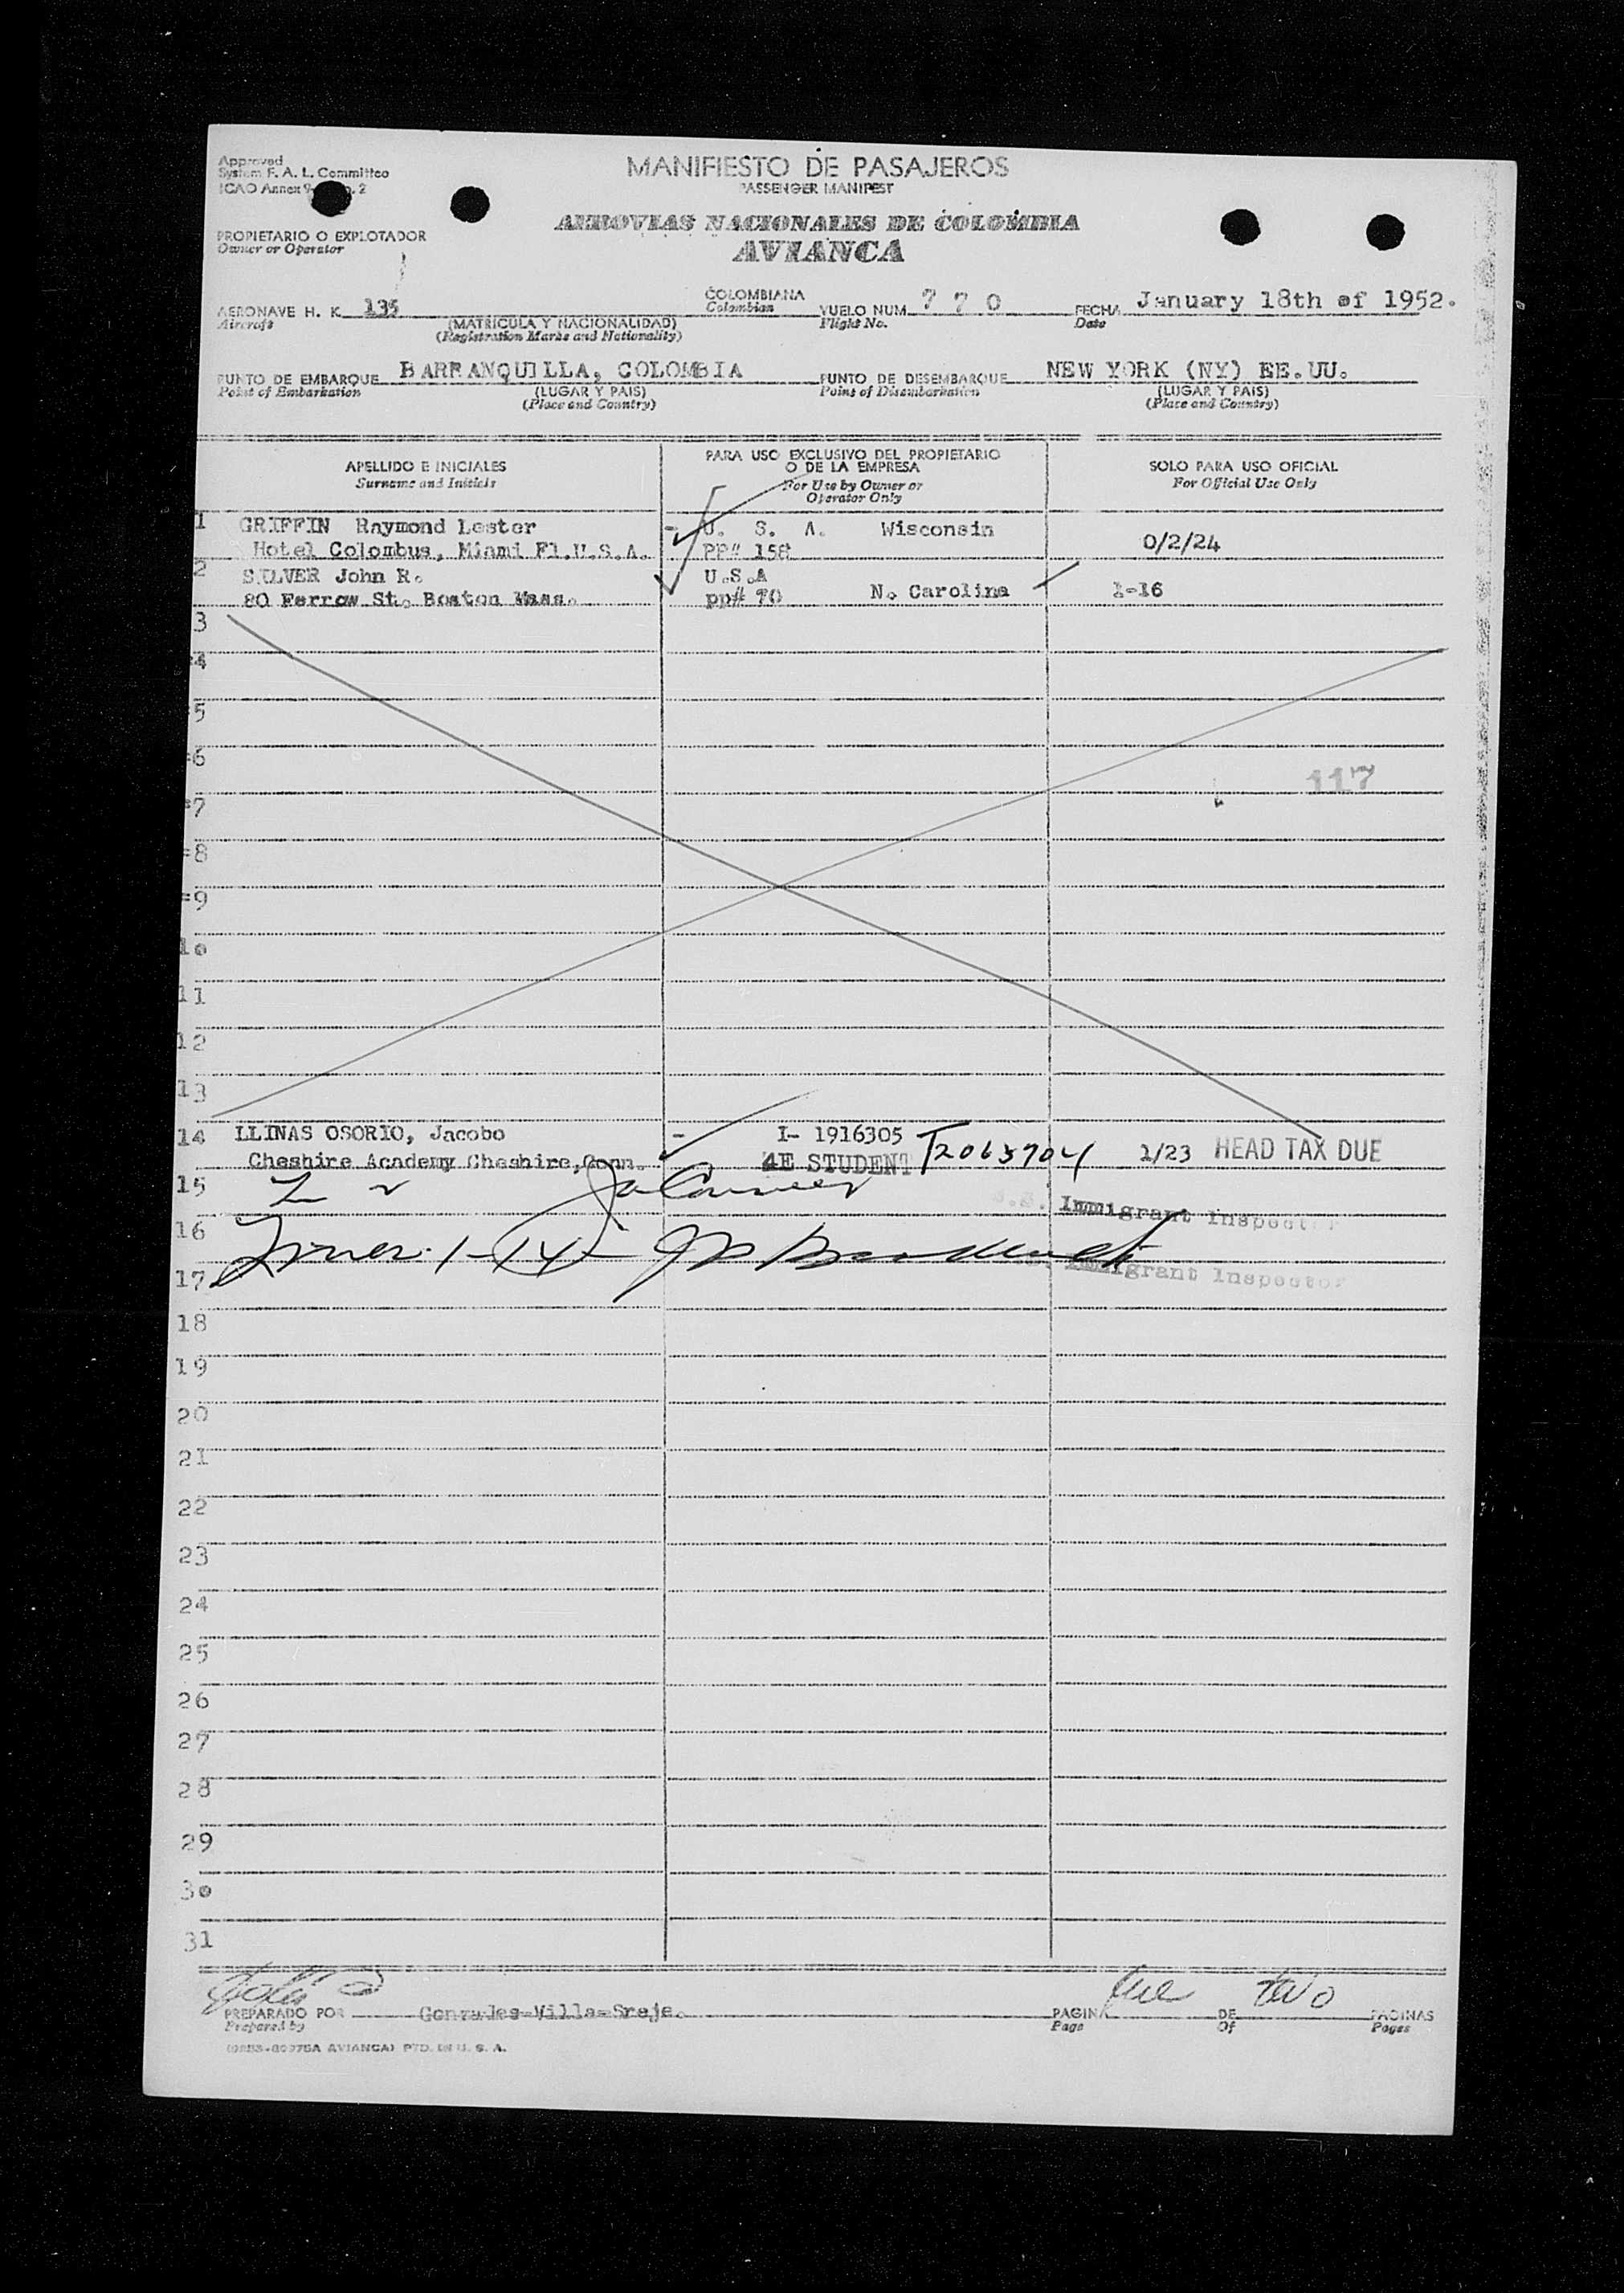 Approved
System F. A. L. Committee
ICAO Annex 9 2
MANIFIESTO DE PASAJEROS
PASSENGER MANIFEST
AEROVIAS NACIONALES DE COLOMBIA
AVIANCA
PROPIETARIO O EXPLOTADOR
Owner or Operator
AERONAVE H. K. 135 COLOMBIANA VUELO NUM. 7 7 0 FECHA January 18th of 1952.
Aircraft (MATRICULA Y NACIONALIDAD) Colombian Flight No. Date
(Registration Marks and Nationality)
PUNTO DE EMBARQUE BARRANQUILLA, COLOMBIA PUNTO DE DESEMBARQUE NEW YORK (NY) EE.UU.
Point of Embarkation (LUGAR Y PAIS) Point of Disembarkation (LUGAR Y PAIS)
(Place and Country) (Place and Country)
APELLIDO E INICIALES
Surname and Initials
PARA USO EXCLUSIVO DEL PROPIETARIO
O DE LA EMPRESA
For Use by Owner or
Operator Only
SOLO PARA USO OFICIAL
For Official Use Only
1 GRIFFIN Raymond Lester - U. S. A. Wisconsin
Hotel Colombus, Miami Fl.U.S.A. PP# 158 0/2/24
2 SILVER John R. U.S.A
80 Ferrow St. Boston Mass. pp# 70 N. Carolina 1-16
3
4
5
6
117
7
8
9
10
11
12
13
14 LLINAS OSORIO, Jacobo - I- 1916305
Cheshire Academy Cheshire,Conn. 4E STUDENT T2063704 1/23 HEAD TAX DUE
15
Immigrant Inspector
16
17
Immigrant Inspector
18
19
20
21
22
23
24
25
26
27
28
29
30
31
PREPARADO POR Gonzales-Villa-Sreje. PAGINA DE two PAGINAS
Prepared by Page Of Pages
AVIANCA) PTD. IN U. S. A.